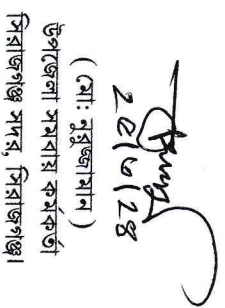 ২৫/৬/২৪
( মো: নুরুজ্জামান )
উপজেলা সমবায় কর্মকর্তা
সিরাজগঞ্জ সদর, সিরাজগঞ্জ।